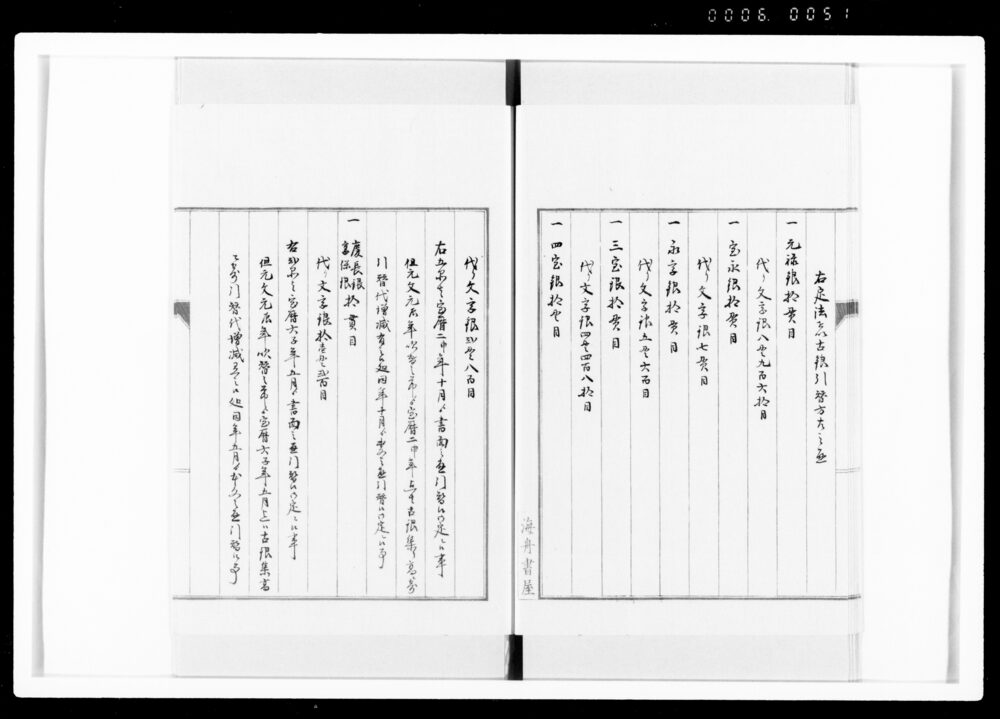 0006.0051
右定法之古銀引替方左之通
一 元禄銀拾貫目
代り文字銀八貫九百六拾目
一 宝永銀拾貫目
代り文字銀七貫目
一 永字銀拾貫目
代り文字銀五貫六百目
一 三宝銀拾貫目
代り文字銀四貫四百八拾目
一 四宝銀拾貫目
海舟書屋
代り文字銀弐貫八百目
右五品者宝暦二申年十月より書面之通引替候御定ニ候事
但元文元辰年吹替之節より宝暦二申年迄者古銀集り高
引替代増減有之候処同年十月より之通引替候御定ニ候事
一 慶長銀 享保銀 拾貫目
代り文字銀拾壱貫弐百目
右弐品者宝暦六子年五月より書面之通引替候御定ニ候事
但元文元辰年吹替之節より宝暦六子年五月迄ハ古銀集高
引替代増減有之候処同年五月より之通引替候事